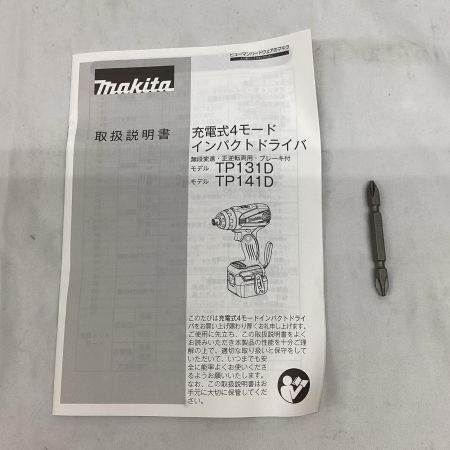 ヒューマンハードウェアのマキタ
makita
取扱説明書
充電式4モード
インパクトドライバ
無段変速・正逆転両用・ブレーキ付
モデル TP131D
モデル TP141D
このたびは充電式4モードインパクトドライ
バをお買い上げ賜わり厚くお礼申し上げます。
ご使用に先立ち、この取扱説明書をよく
お読みいただき本製品の性能を十分ご理
解の上で、適切な取り扱いと保守をして
いただいて、いつまでも安
全に能率よくお使いくださ
るようお願いいたします。
なお、この取扱説明書はお
手元に大切に保管してくださ
い。